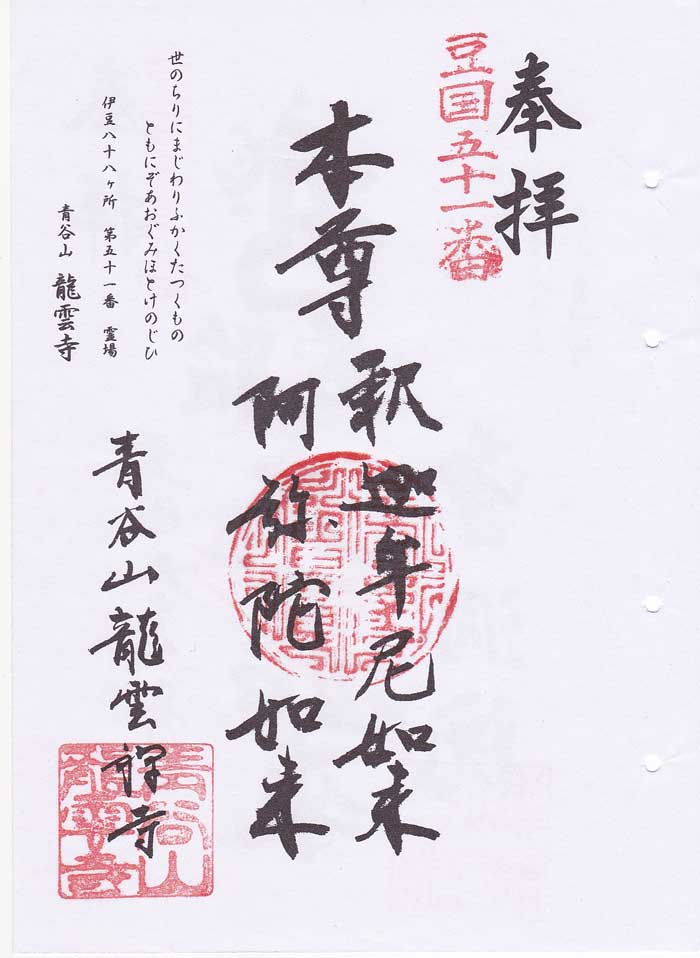 奉拝
豆国五十一番
本尊
釈迦牟尼如来
阿弥陀如来
世のちりにまじわりふかくたつくもの
ともにぞあおぐみほとけのじひ
伊豆八十八ヶ所 第五十一番 霊場
青谷山 龍雲寺
青谷山龍雲禅寺
青谷山
龍雲寺